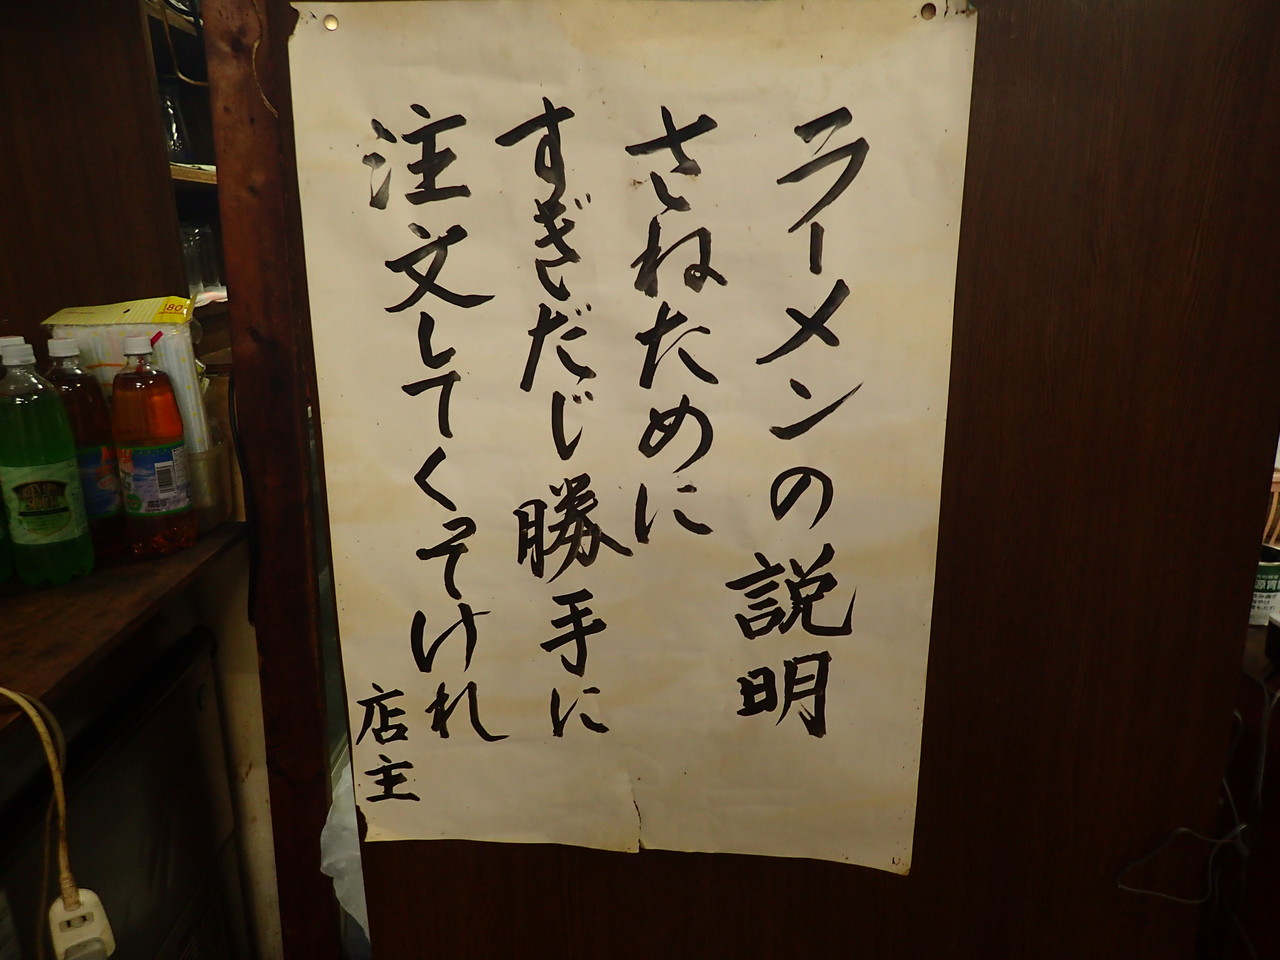 ラーメンの説明
さねために
すぎだじ勝手に
注文してくってけれ
店主
80